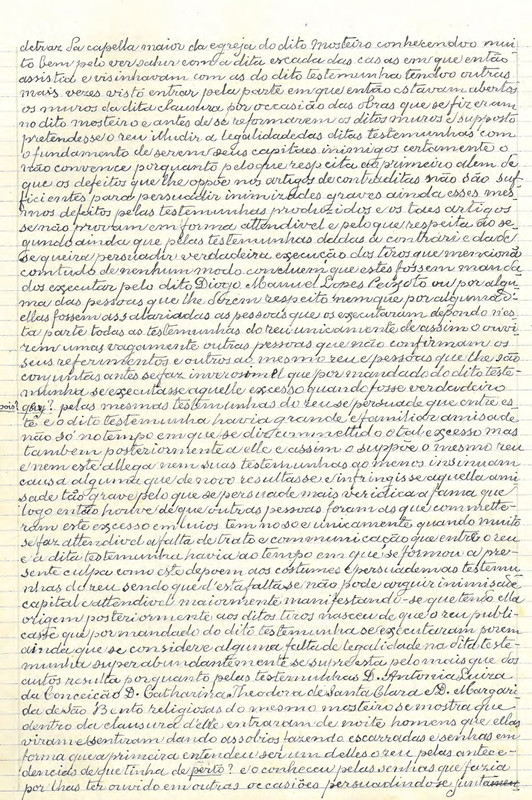 detraz da capella maior da egreja do dito mosteiro conhecendoo mui-
to bem pelo ver sahir com a dita escada das casas em que então
assistia e visinhavam com as do dito testemunha tendoo outras
mais vezes visto entrar pela parte em que então estavam abertos
os muros da dita clausura por occasião das obras que se fizeram
no dito mosteiro e antes de se reformarem os ditos muros e supposto
pretendesse o reu illudir a legalidade das ditas testemunhas com
o fundamento de serem seus capitaes inimigos certamente o
não convence porquanto pelo que respeita ao primeiro alem de
que os defeitos que lhe oppõe nos artigos de contraditas não são suf-
ficientes para persuadir inimizades graves ainda esses mes-
mos defeitos pelas testemunhas produzidos e os taes artigos
se não provam em forma attendivel e pelo que respeita ao se-
gundo ainda que pelas testemunhas dadas á contrariedade
se queira persuadir verdadeira execução dos tiros que menciona
comtudo de nenhum modo concluem que estes fossem manda-
dos executar pelo dito Diogo Manuel Lopes Peixoto ou por algu-
ma das pessoas que lhe dizem respeito nem que por alguma d'-
ellas fossem assalariadas as pessoas que os executaram depondo n'es-
ta parte todas as testemunhas do reu unicamente de assim o ouvi-
rem umas vagamente outras pessoas que não confirmam os
seus referimentos e outros ao mesmo reu e pessoas que lhe são
conjuntas antes se faz inverosimel que por mandado do dito teste-
munha se executasse aquelle excesso quando fosse verdadeiro
pois? pelas mesmas testemunhas do reu se persuade que entre es-
te e o dito testemunha havia grande e familiar amisade
não só no tempo em que se diz commettido o tal excesso mas
tambem posteriormente a elle e assim o suppõe o mesmo reu
e nem este allega nem suas testemunhas ao menos insinuam
causa alguma que de novo resultasse e infringisse aquella ami-
sade tão grave pelo que se persuade mais veridica a fama que
logo então houve de que outras pessoas foram as que commette-
ram este excesso em cujos termos e unicamente quando muito
se faz attendivel a falta de trato e communicação que entre o reu
e a dita testemunha havia ao tempo em que se formou a pre-
sente culpa como esta depoem aos costumes e persuadem as testemu-
nhas do reu sendo que d'esta falta se não pode arguir inimisade
capital e attendivel maiormente manifestando-se que tendo ella
origem posteriormente aos ditos tiros nasceu de que o reu publi-
casse que por mandado do dito testemunha se executaram porem
ainda que se considere alguma falta de legalidade na dita teste-
munha superabundantemente se supre esta pelo mais que dos
autos resulta porquanto pelas testemunhas D. Antonia Luiza
da Conceição D. Catharina Theodora de Santa Clara e D. Margari-
da de São Bento religiosas do mesmo mosteiro se mostra que
dentro da clausura d'elle entraram de noite homens que ellas
viram e sentiram dando assobios fazendo escarradas e senhas em
forma que a primeira entendeu ser um d'elles o reu pelas antece-
dencias de que tinha de perto? e o conheceu pelas senhas que fazia
por lhas ter ouvido em outras occasiões persuadindo-se juntamen-